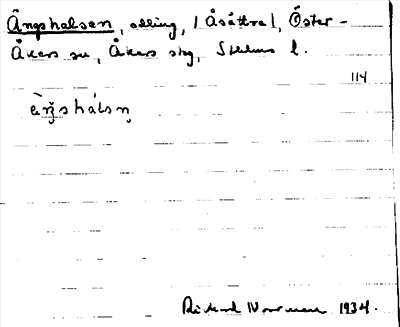 Ängshalsen, odling, | Åsättra |, Öster-
Åkers sn, Åkers skg, Sthlms l.
114
ὲŋshálsn̥
Rickard Norrman 1934.